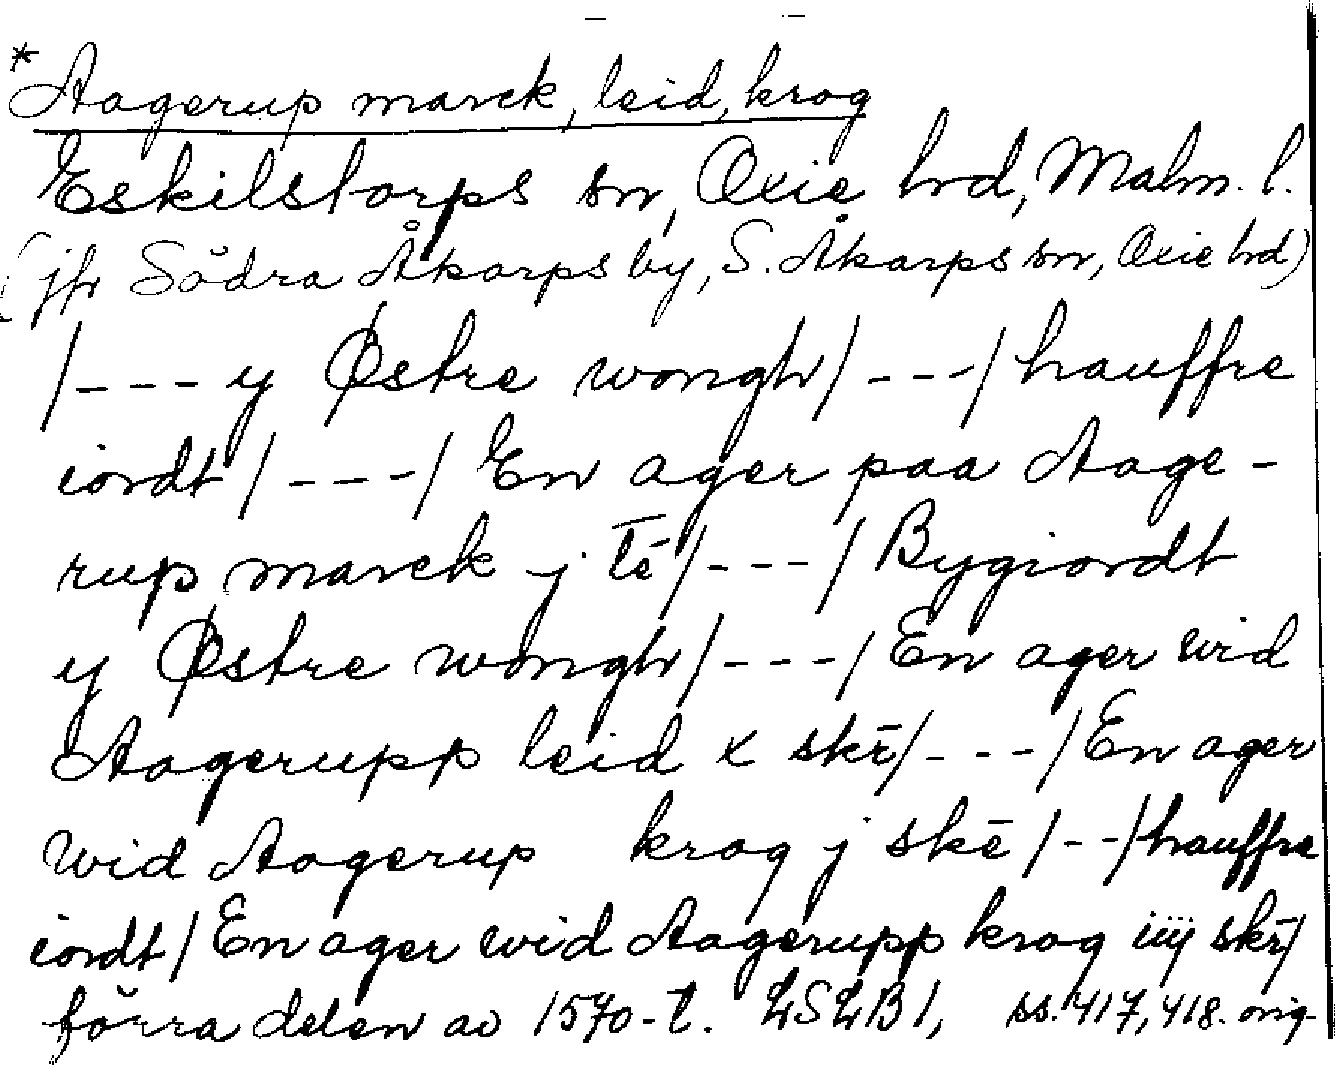 *Aagerup marck, leid, krog
Eskilstorps sn, Oxie hrd, Malm. l.
(jfr Södra Åkarps by, S. Åkarps sn, Oxie hrd)
/--- y Østre wongh/---/hauffre
iordt/---/ En ager paa Aage-
rup marck j tē/---/Bygiordt
y Østre wongh/---/En ager wid
Aagerupp leid x skr̄/---/En ager
wid Aagerup krog j skē/--/hauffre
iordt/En ager wid Aagerupp krog iiij skr̄/
förra delen av 1570-t. LSLB 1, ss. 417, 418. orig.